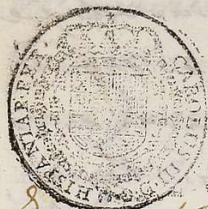 CAROLUS III D.G. HISPANIAR.REX